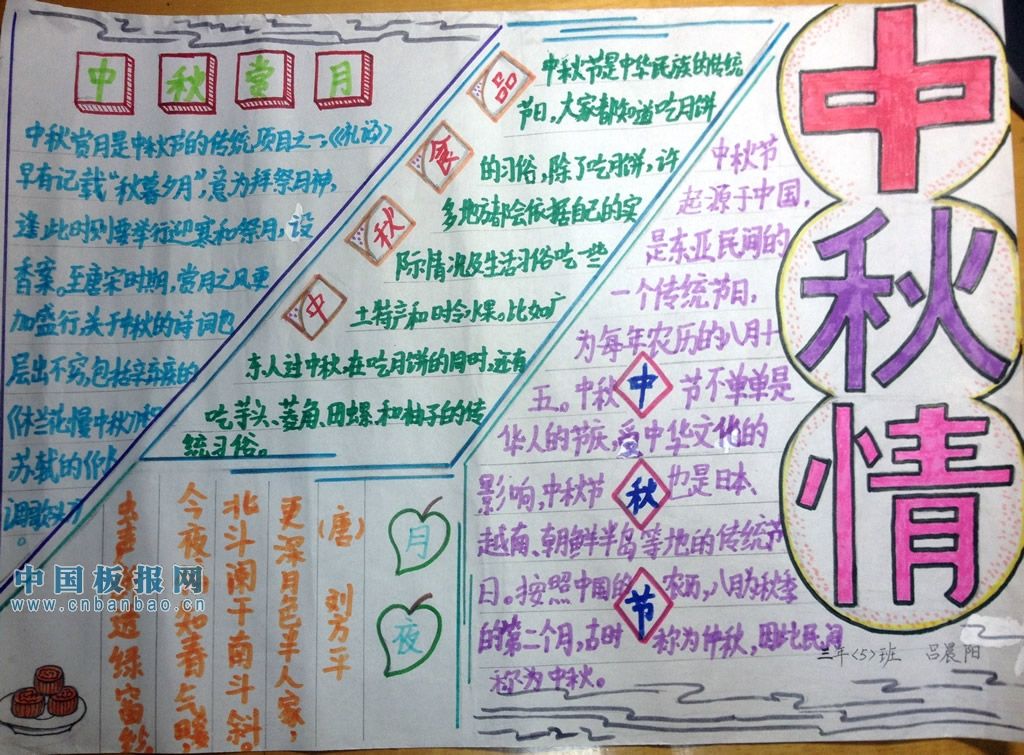 中秋情
中秋赏月
中秋赏月是中秋节的传统项目之一,《礼记》
早有记载“秋暮夕月”,意为拜祭月神,
逢此时则要举行迎寒和祭月,设
香案。至唐宋时期,赏月之风更
加盛行,关于中秋的诗词也
层出不穷,包括辛弃疾的
《木兰花慢中秋》和
苏轼的《水
调歌头》
。
中秋食品
中秋节是中华民族的传统
节日,大家都知道吃月饼
的习俗,除了吃月饼,许
多地方都会依据自己的实
际情况及生活习俗吃一些
土特产和时令水果。比如广
东人过中秋,在吃月饼的同时,还有
吃芋头、菱角、田螺和柚子的传
统习俗。
中秋节
中秋节
起源于中国,
是东亚民间的
一个传统节日,
为每年农历的八月十
五。中秋节不单单是
华人的节庆,受中华文化的
影响,中秋节也是日本、
越南、朝鲜半岛等地的传统节
日。按照中国的农历,八月为秋季
的第二个月,古时称为仲秋,因此民间
称为中秋。
三年<5>班 吕晨阳
月夜
(唐) 刘方平
更深月色半人家,
北斗阑干南斗斜。
今夜知春气暖,
虫声透绿窗纱
中国板报网
www.cnbanbao.cn